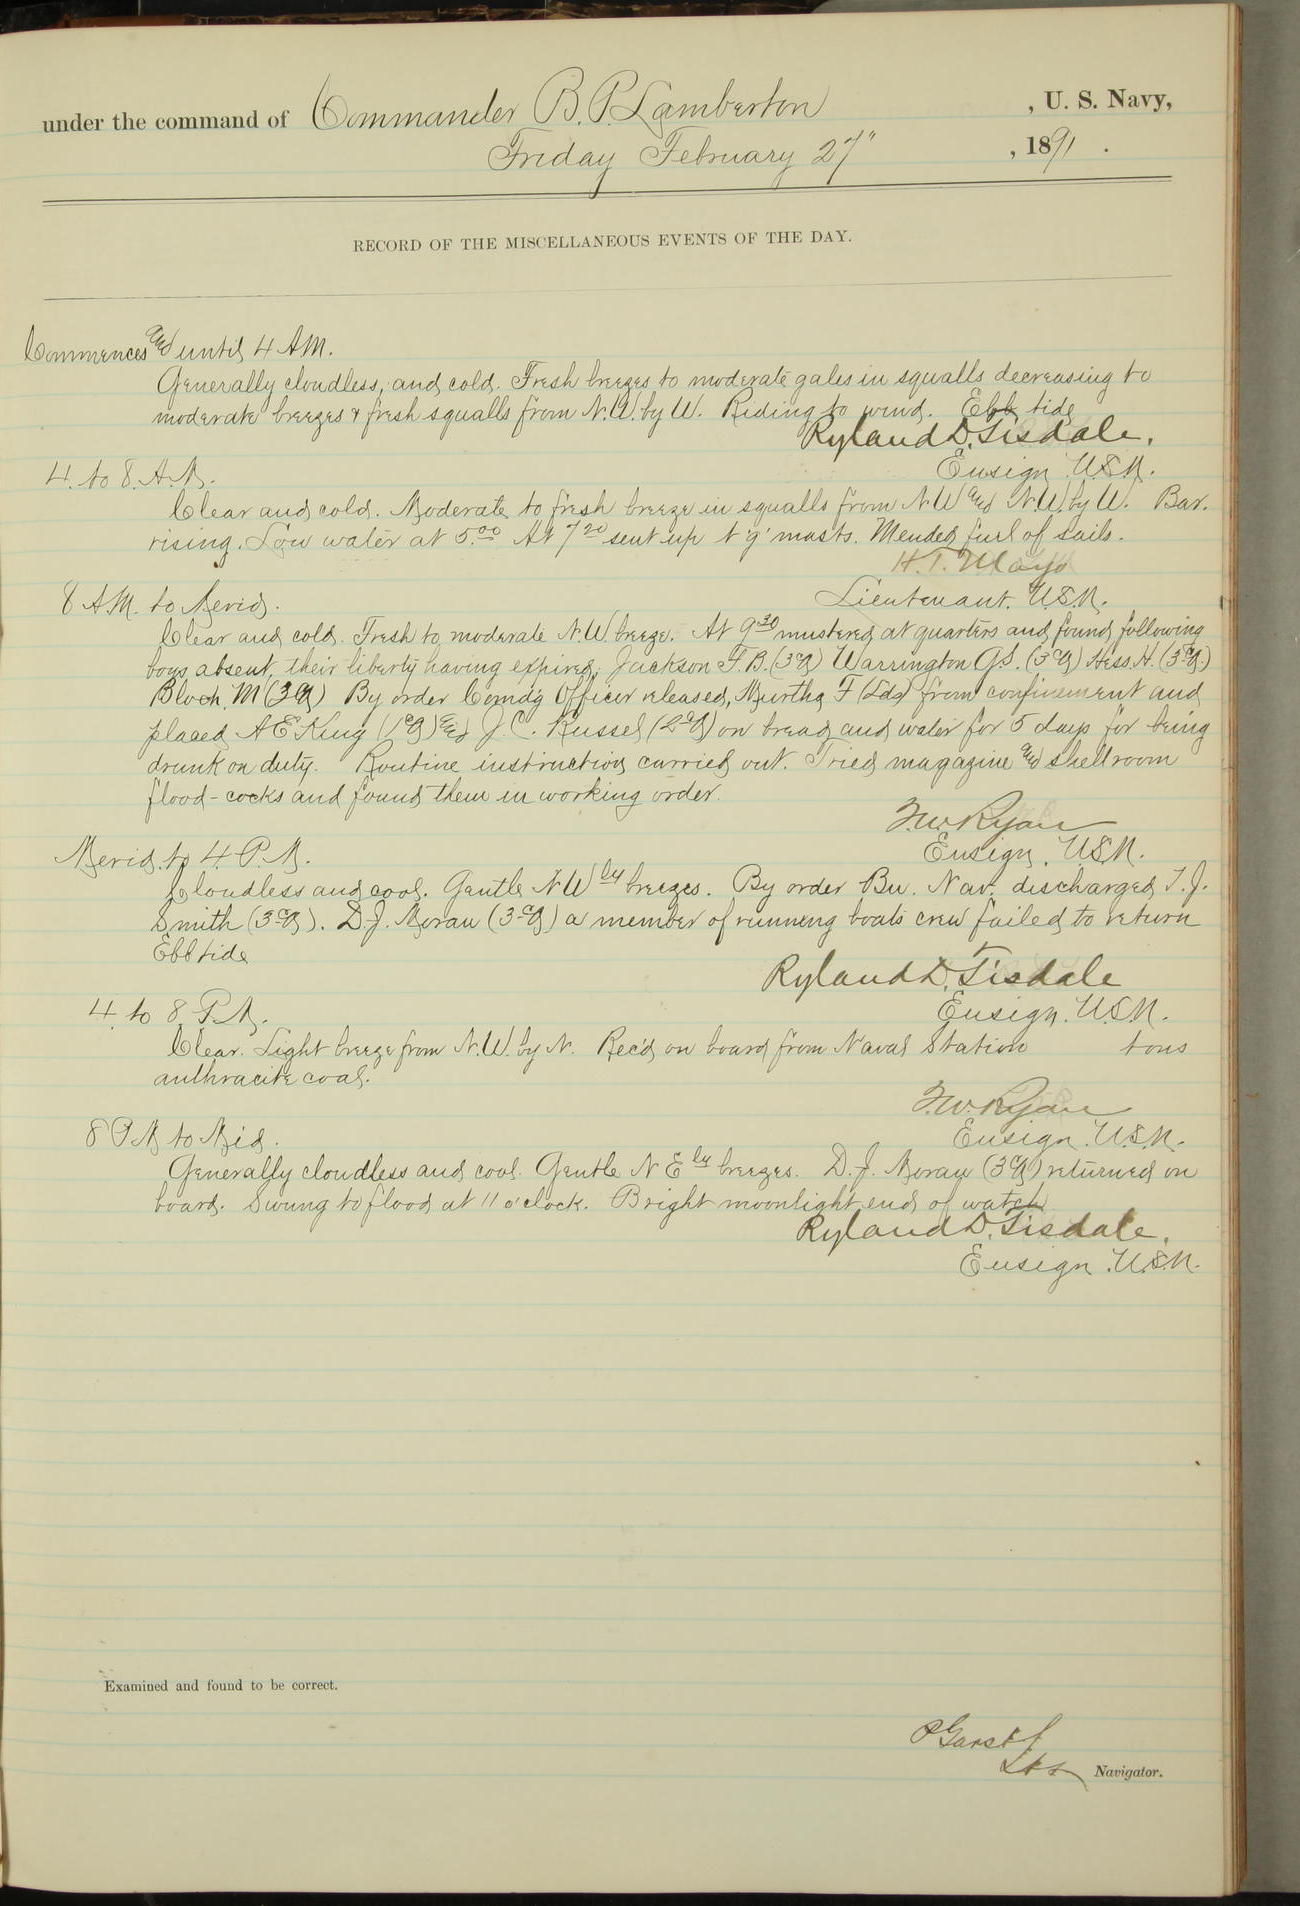 under the command of Commander B. P. Lamberton , U. S. Navy,
Friday February 27" , 1891 .
RECORD OF THE MISCELLANEOUS EVENTS OF THE DAY.
Commences and until 4 AM.
Generally cloudless, and cold. Fresh breezes to moderate gales in squalls decreasing to
moderate breezes & fresh squalls from N.W. by W. Riding to wind. Ebb tide
Ryland D. Tisdale.
Ensign U.S.N.
4. to 8. A.M.
Clear and cold. Moderate to fresh breeze in squalls from N.W and N.W. by W. Bar.
rising. Low water at 5.00 At 7 20 sent up t'g' masts. Mended furl of sails.
H. T. Mayo
Lieutenant. U.S.N.
8 A.M. to Merid.
Clear and cold. Fresh to moderate N.W. breeze. At 9 30 mustered at quarters and found following
boys absent, their liberty having expired; Jackson F. B. (3cl) Warrington G.S. (3cl) Hess. H. (3cl.)
Bloch M (3cl) By order Comd'g Officer released, Murtha F (Lds) from confinement and
placed A E King (1cl) and J. C. Russel (2cl) on bread and water for 5 days for being
drunk on duty. Routine instruction carried out. Tried magazine and shellroom
flood-cocks and found them in working order.
F. W. Ryan
Ensign. U.S.N.
Merid. to 4. P.M.
Cloudless and cool. Gentle N W ly breezes. By order Bu. Nav. discharged T. J.
Smith (3cl). D. J. Moran (3cl) a member of running boats crew failed to return
Ebb tide
Ryland D. Tisdale
Ensign. U.S.N.
4. to 8 P.M.
Clear. Light breeze from N.W. by N. Rec'd on board from Naval Station tons
anthracite coal.
F. W. Ryan
Ensign. U.S.N.
8 P.M to Mid.
Generally cloudless and cool. Gentle N E ly breezes. D. J. Moran (3cl) returned on
board. Swung to flood at 11 o'clock. Bright moonlight end of watch
Ryland D. Tisdale.
Ensign. U.S.N.
Examined and found to be correct.
P Garst
Lt Navigator.